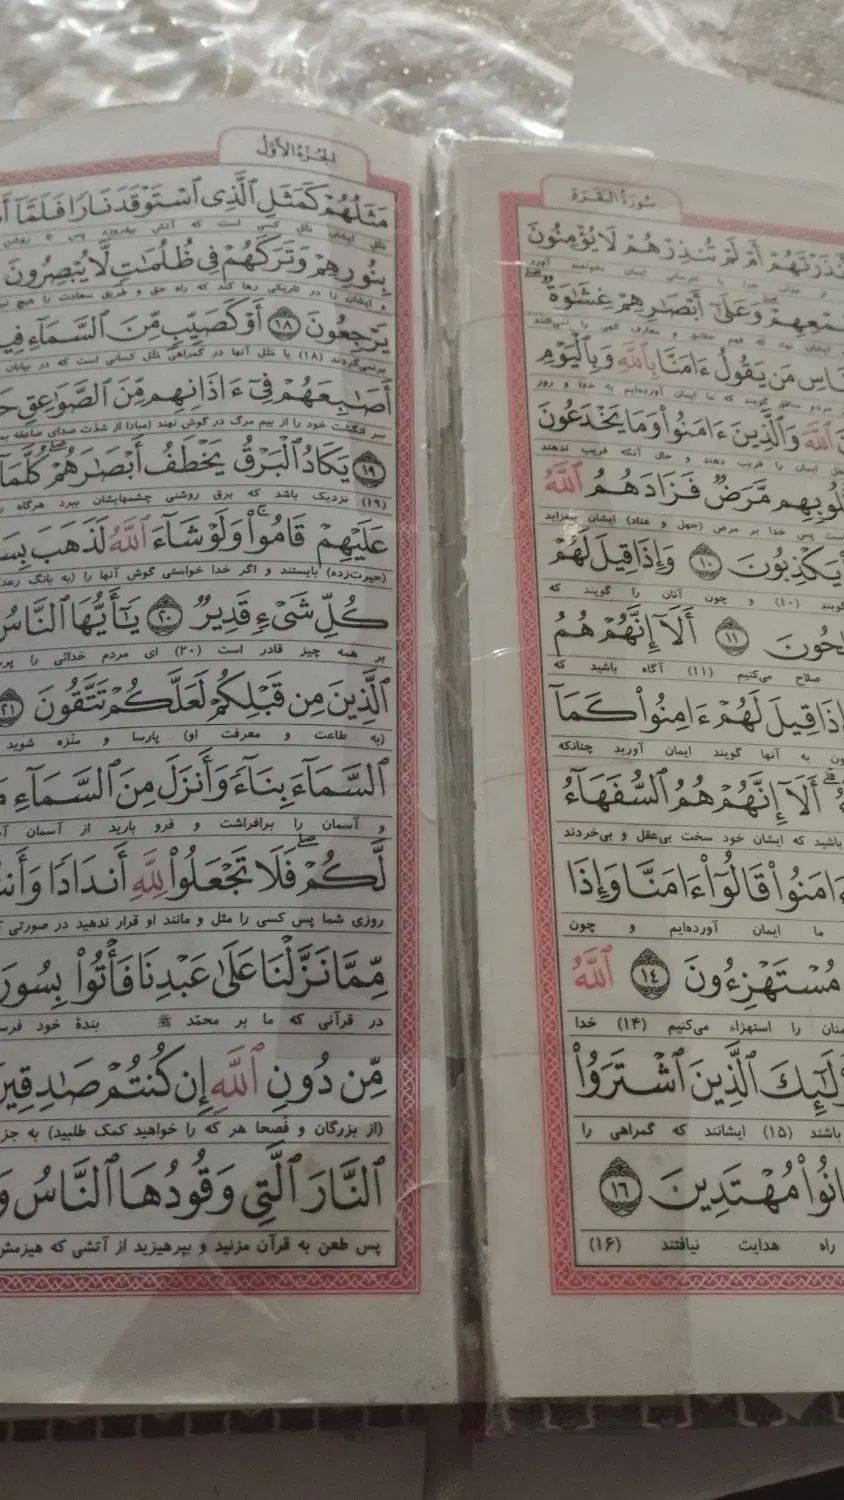 سُورَةُ الْبَقَرَةِ
ءَأَنذَرْتَهُمْ أَمْ لَمْ تُنذِرْهُمْ لَا يُؤْمِنُونَ
ایمان نخواهند آورد
سَمْعِهِمْ وَعَلَىٰٓ أَبْصَـٰرِهِمْ غِشَـٰوَةٌ
ایشان نهاد که فهم حقایق و معارف الهی را نمی‌کنند
مَن يَقُولُ ءَامَنَّا بِٱللَّهِ وَبِٱلْيَوْمِ
مردم منافق گویند که ما ایمان آورده‌ایم به خدا و روز
ٱللَّهَ وَٱلَّذِينَ ءَامَنُوا۟ وَمَا يَخْدَعُونَ
اهل ایمان را فریب دهند و حال آنکه فریب ندهند
قُلُوبِهِم مَّرَضٌ فَزَادَهُمُ ٱللَّهُ
است پس خدا بر مرض (جهل و عناد) ایشان بیفزاید
يَكْذِبُونَ ١٠ وَإِذَا قِيلَ لَهُمْ
گویند (۱۰) و چون آنان را گویند که
أَلَآ إِنَّهُمْ هُمُ ١١
صلاح می‌کنیم (۱۱) آگاه باشید که
إِذَا قِيلَ لَهُمْ ءَامِنُوا۟ كَمَآ
به آنها گویند ایمان آورید چنانکه
أَلَآ إِنَّهُمْ هُمُ ٱلسُّفَهَآءُ
باشید که ایشان خود سخت بی‌عقل و بی‌خردند
ءَامَنُوا۟ قَالُوٓا۟ ءَامَنَّا وَإِذَا
ما ایمان آورده‌ایم و چون
مُسْتَهْزِءُونَ ١٤ ٱللَّهُ
را استهزاء می‌کنیم (۱۴) خدا
ٱلَّذِينَ ٱشْتَرَوُا۟
باشند (۱۵) ایشانند که گمراهی را
مُهْتَدِينَ ١٦
راه هدایت نیافتند (۱۶)
الجُزءُ الأوّلُ
مَثَلُهُمْ كَمَثَلِ ٱلَّذِى ٱسْتَوْقَدَ نَارًا فَلَمَّآ
مثل ایشان مثل کسی است که آتش بیفروزد پس تا روشن
بِنُورِهِمْ وَتَرَكَهُمْ فِى ظُلُمَـٰتٍ لَّا يُبْصِرُونَ
و ایشان را در تاریکی رها کند که راه حق و طریق سعادت را هیچ
يَرْجِعُونَ ١٨ أَوْ كَصَيِّبٍ مِّنَ ٱلسَّمَآءِ فِيهِ
برنمی‌گردند (۱۸) یا مثل آنها در گمراهی مثل کسانی است که در بیابان
أَصَـٰبِعَهُمْ فِىٓ ءَاذَانِهِم مِّنَ ٱلصَّوَٰعِقِ
سر انگشت خود را از بیم مرگ در گوش نهند (مبادا) از شدّت صدای صاعقه
١٩ يَكَادُ ٱلْبَرْقُ يَخْطَفُ أَبْصَـٰرَهُمْ كُلَّمَآ
(۱۹) نزدیک باشد که برق روشنی چشمهایشان ببرد هرگاه
عَلَيْهِمْ قَامُوا۟ وَلَوْ شَآءَ ٱللَّهُ لَذَهَبَ
(حیرت‌زده) بایستند و اگر خدا خواستی گوش آنها را (به بانگ رعد
كُلِّ شَىْءٍ قَدِيرٌ ٢٠ يَـٰٓأَيُّهَا ٱلنَّاسُ
بر همه چیز قادر است (۲۰) ای مردم خدائی را
ٱلَّذِينَ مِن قَبْلِكُمْ لَعَلَّكُمْ تَتَّقُونَ ٢١
(به طاعت و معرفت او) پارسا و منزّه شوید
ٱلسَّمَآءَ بِنَآءً وَأَنزَلَ مِنَ ٱلسَّمَآءِ
و آسمان را برافراشت و فرو بارید از آسمان
لَّكُمْ فَلَا تَجْعَلُوا۟ لِلَّهِ أَندَادًا
روزی شما پس کسی را مثل و مانند او قرار ندهید در صورتی
مِّمَّا نَزَّلْنَا عَلَىٰ عَبْدِنَا فَأْتُوا۟
در قرآنی که ما بر محمّد ﷺ بندهٔ خود
مِّن دُونِ ٱللَّهِ إِن كُنتُمْ صَـٰدِقِينَ
(از بزرگان و فصحا هر که را خواهید کمک طلبید) به جز
ٱلنَّارَ ٱلَّتِى وَقُودُهَا ٱلنَّاسُ
پس طعن به قرآن مزنید و بپرهیزید از آتشی که